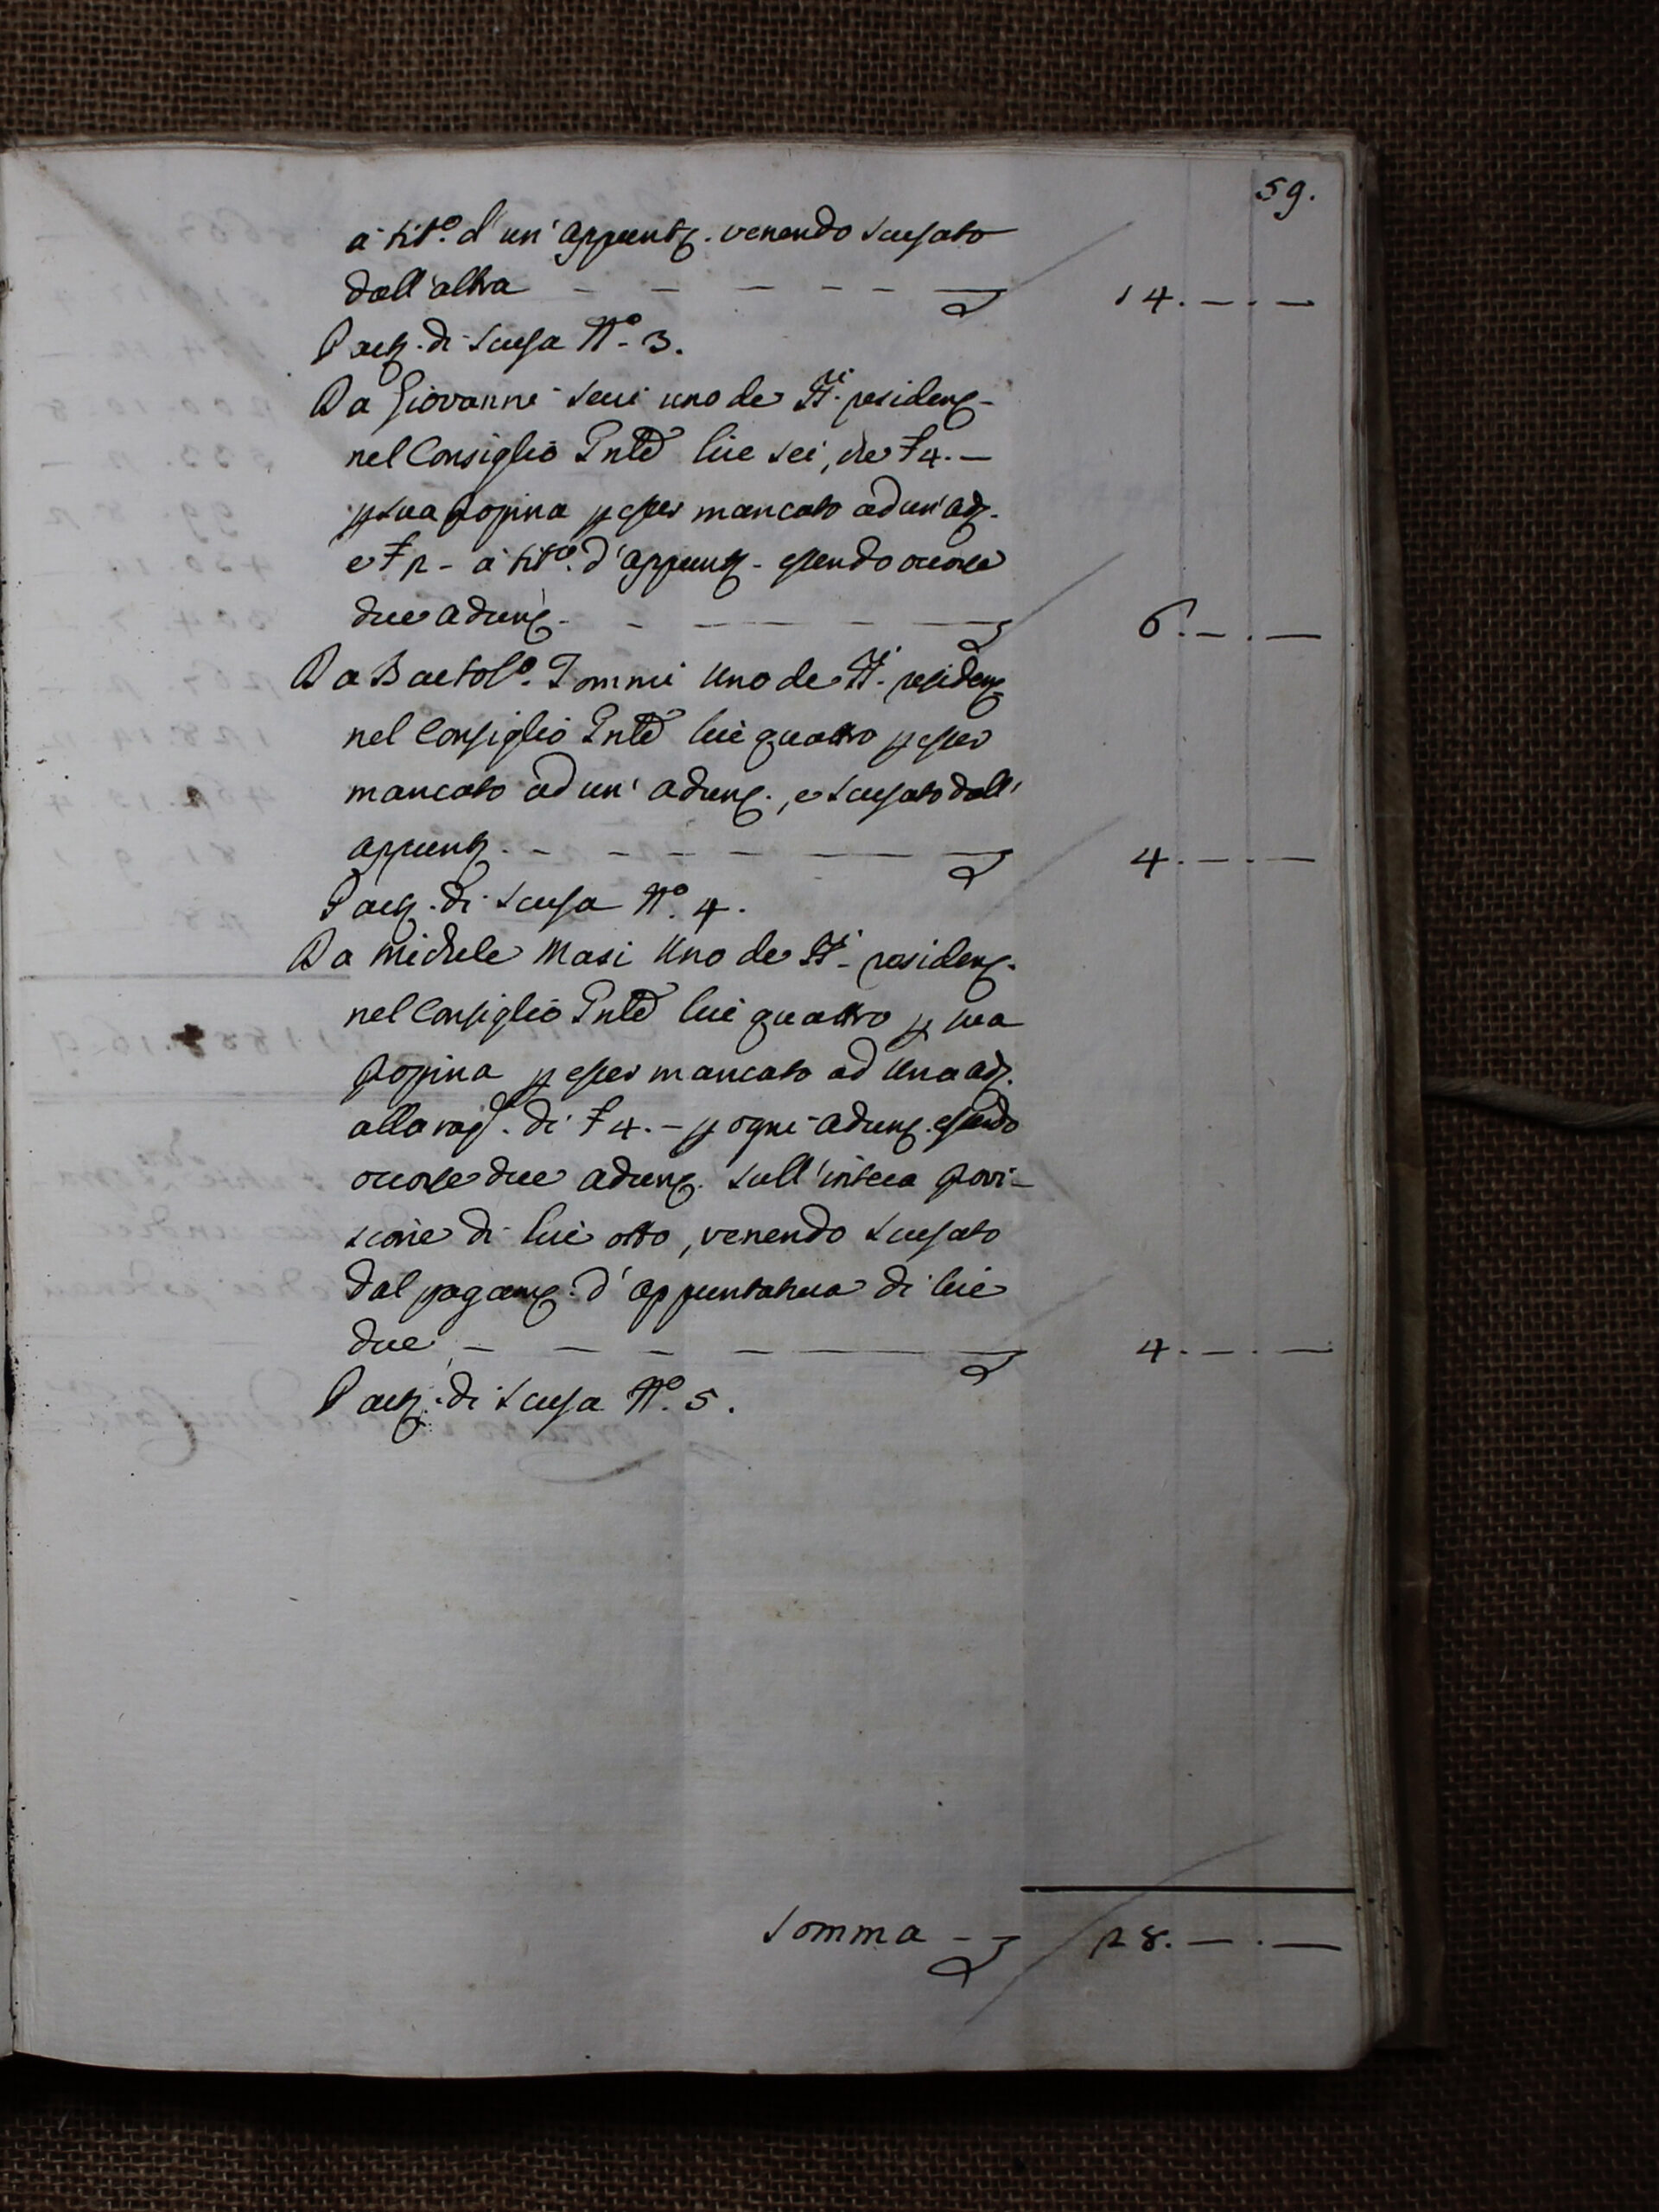 59.
a tit.º d'un' appunt. venendo scusato
dall'altra — — — — — — 14. — . —
P acc. di scusa Nº. 3.
Da Giovanni Seui uno de SS.ri residen.
nel Consiglio Gnle lire sei, che £ 4. —
p sua propina p esser mancato ad un' ad.
e £ 2 - a tit.º d'appunt. essendo occorse
due adun. — — — — — 6. — . —
Da Bartol.º Tommi uno de SS.ri residen.
nel Consiglio Gnle lire quattro p esser
mancato ad un' adun., e scusato dall'
appunt. — — — — — — 4. — . —
P acc. di scusa Nº. 4.
Da Michele Masi uno de SS.ri residen.
nel Consiglio Gnle lire quattro p sua
propina p esser mancato ad una ad.
alla rag. di £ 4. — p ogni adun. essendo
occorse due adun. sull'intera provi-
sione di lire otto, venendo scusato
dal pagam. d'appuntatura di lire
due — — — — — — 4. — . —
P acc. di scusa Nº. 5.
Somma — 28. — . —